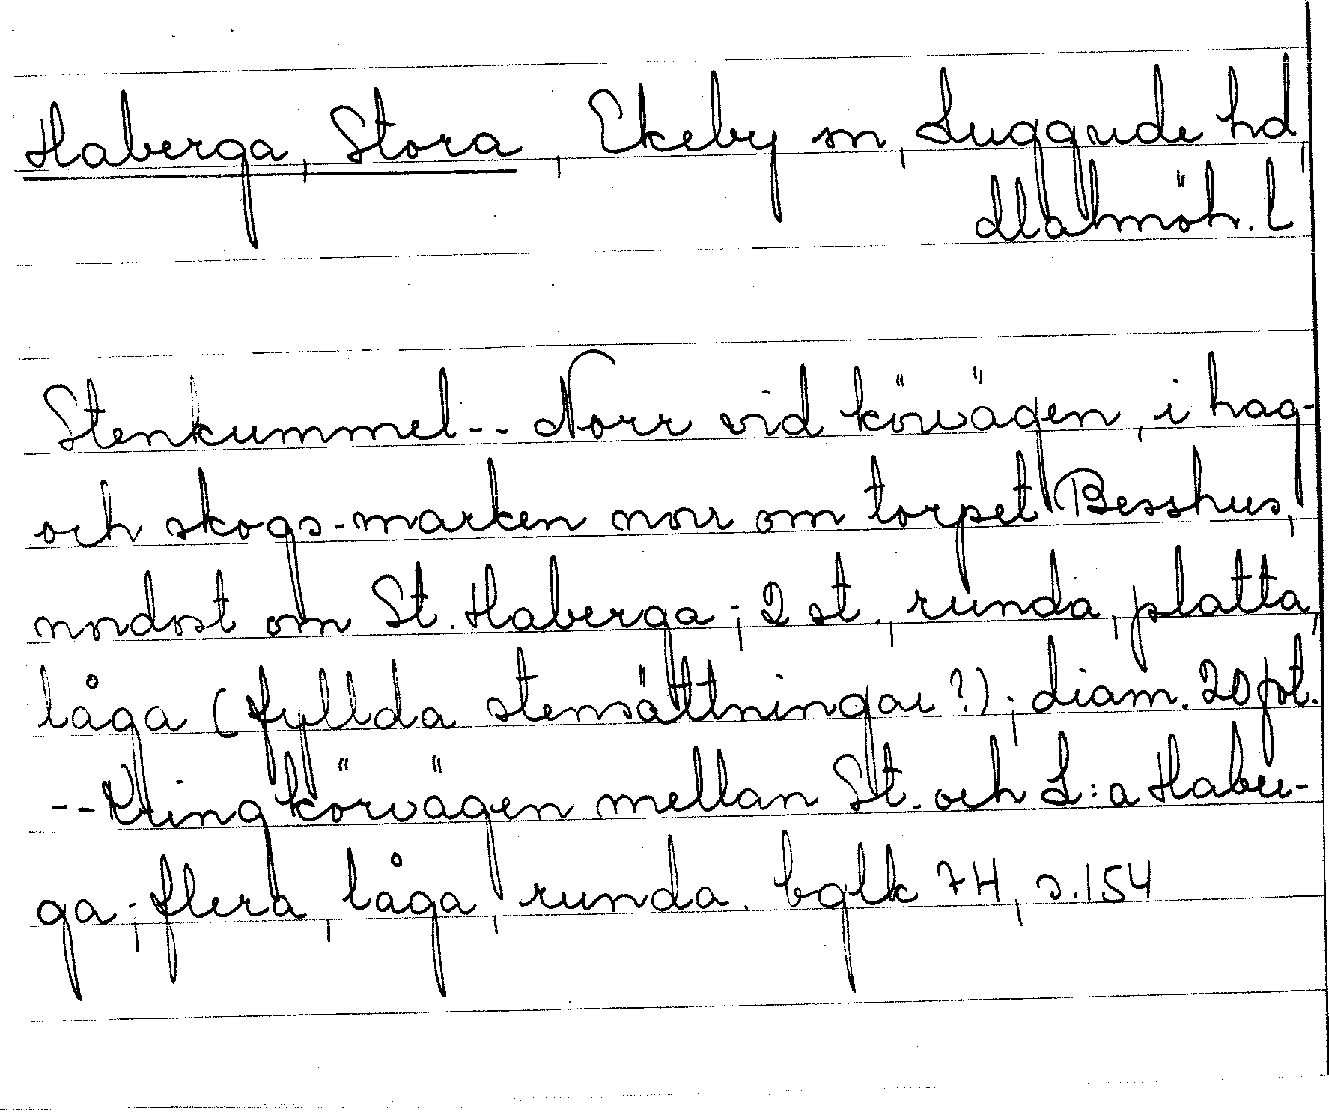 Haberga, Stora, Ekeby sn, Luggude hd,
Malmöh. L
Stenkummel -- Norr vid körvägen, i hag-
och skogs-marken norr om torpet Besshus,
nndost om St. Haberga; 2 st., runda, platta,
låga (fyllda stensättningar?); diam. 20 fot.
-- Kring körvägen mellan St. och L:a Haber-
ga; flera, låga, runda. bglk 74, s. 154